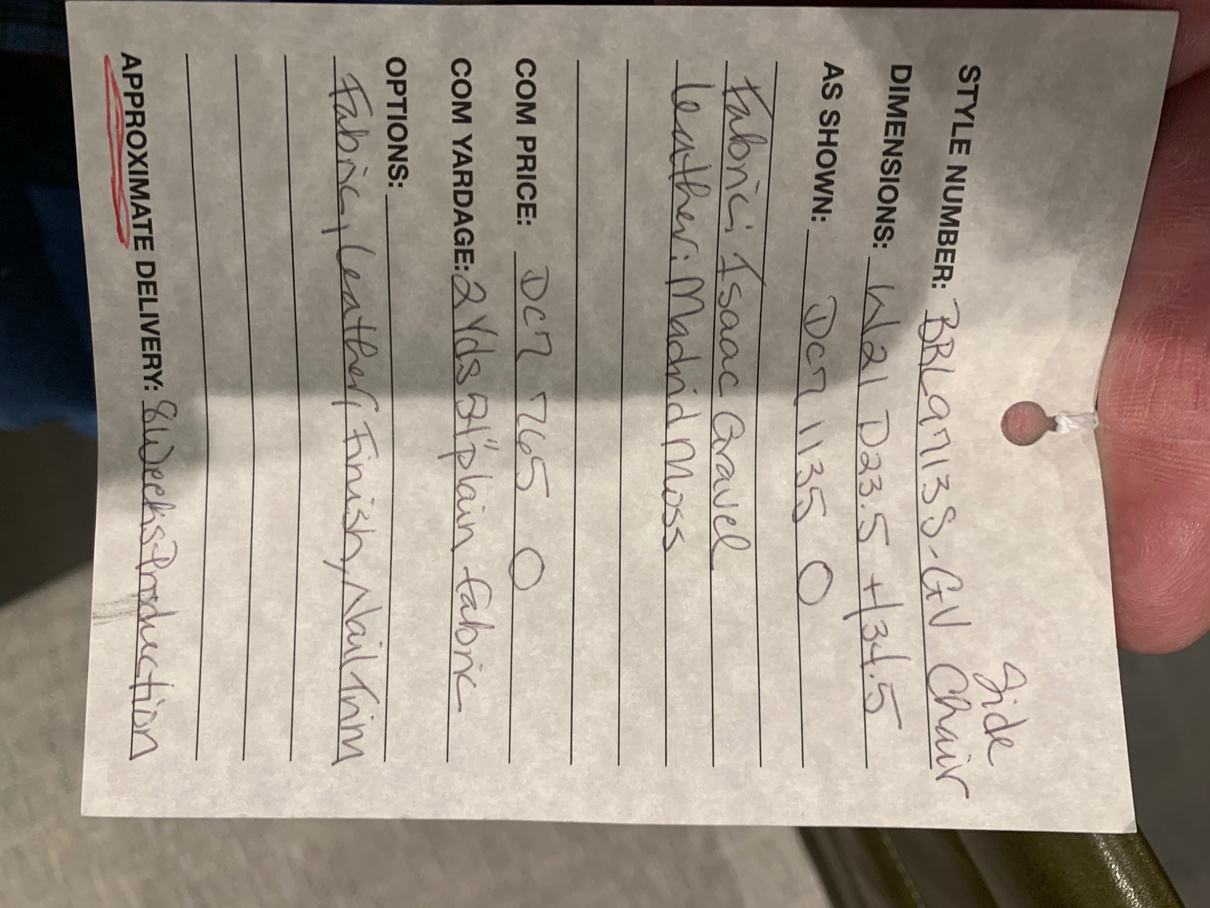 Side
STYLE NUMBER: BRL9713S-GV Chair
DIMENSIONS: W21 D23.5 H34.5
AS SHOWN: DC7 1135 0
Fabric: Isaac Gravel
Leather: Madrid Moss
COM PRICE: DC7 765 0
COM YARDAGE: 2 Yds 51" plain fabric
OPTIONS:
Fabric, Leather, Finish, Nail Trim
APPROXIMATE DELIVERY: 8 Weeks Production